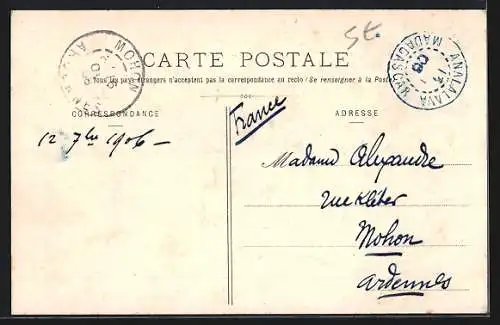 St.
CARTE POSTALE
Tous les pays étrangers n'acceptent pas la correspondance au recto (Se renseigner à la Poste)
CORRESPONDANCE
ADRESSE
MOHON
ANALALAVA
MADAGASCAR
France
12 7bre 1906 —
Madame Alexandre
rue Kléber
Mohon
Ardennes